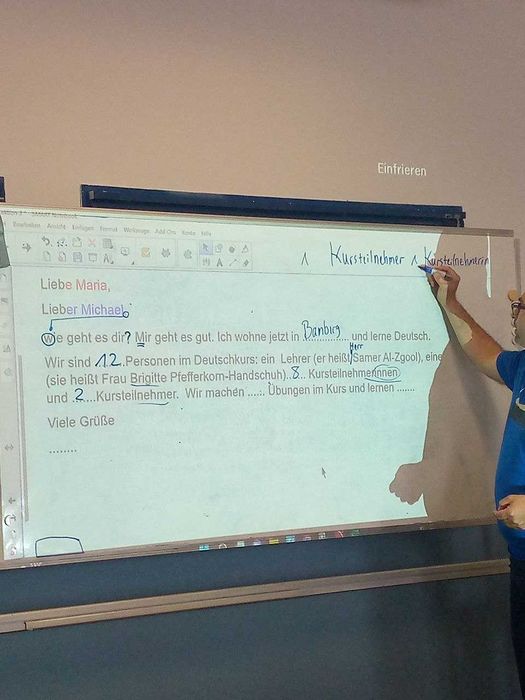 Einfrieren
Bearbeiten Ansicht Einfügen Format Werkzeuge Add-Ons Konto Hilfe
1 Kursteilnehmer 1 Kursteilnehmerin
Liebe Maria,
Lieber Michael,
Wie geht es dir? Mir geht es gut. Ich wohne jetzt in Bamberg und lerne Deutsch.
Herr
Wir sind 12 Personen im Deutschkurs: ein Lehrer (er heißt Samer Al-Zgool), eine
(sie heißt Frau Brigitte Pfefferkorn-Handschuh)..8... Kursteilnehmerinnen
und ..2....Kursteilnehmer. Wir machen ...... Übungen im Kurs und lernen .......
Viele Grüße
........